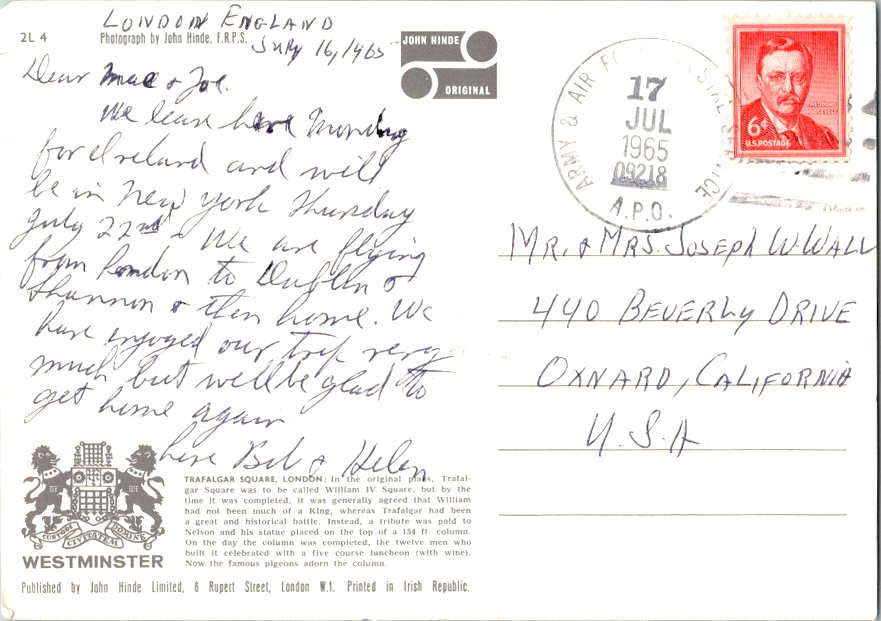 LONDON ENGLAND
2L 4
Photograph by John Hinde, F.R.P.S.
July 16, 1965
JOHN HINDE
ORIGINAL
Dear Mae & Joe.
We leave here Monday
for Ireland and will
be in New York Thursday
July 22nd - We are flying
from London to Dublin &
Shannon & then home. We
have enjoyed our trip very
much but we'll be glad to
get home again
Love Bob & Helen
ARMY & AIR FORCE POSTAL SERVICE
17
JUL
1965
09218
A.P.O.
THEODORE
ROOSEVELT
6¢
U.S. POSTAGE
MR. & MRS. JOSEPH W. WALL
440 BEVERLY DRIVE
OXNARD, CALIFORNIA
U.S.A
CUSTODI CIVITATEM DOMINE
WESTMINSTER
TRAFALGAR SQUARE, LONDON: In the original plans, Trafal-
gar Square was to be called William IV Square, but by the
time it was completed, it was generally agreed that William
had not been much of a King, whereas Trafalgar had been
a great and historical battle. Instead, a tribute was paid to
Nelson and his statue placed on the top of a 154 ft. column.
On the day the column was completed, the twelve men who
built it celebrated with a five course luncheon (with wine).
Now the famous pigeons adorn the column.
Published by John Hinde Limited, 6 Rupert Street, London W.1. Printed in Irish Republic.